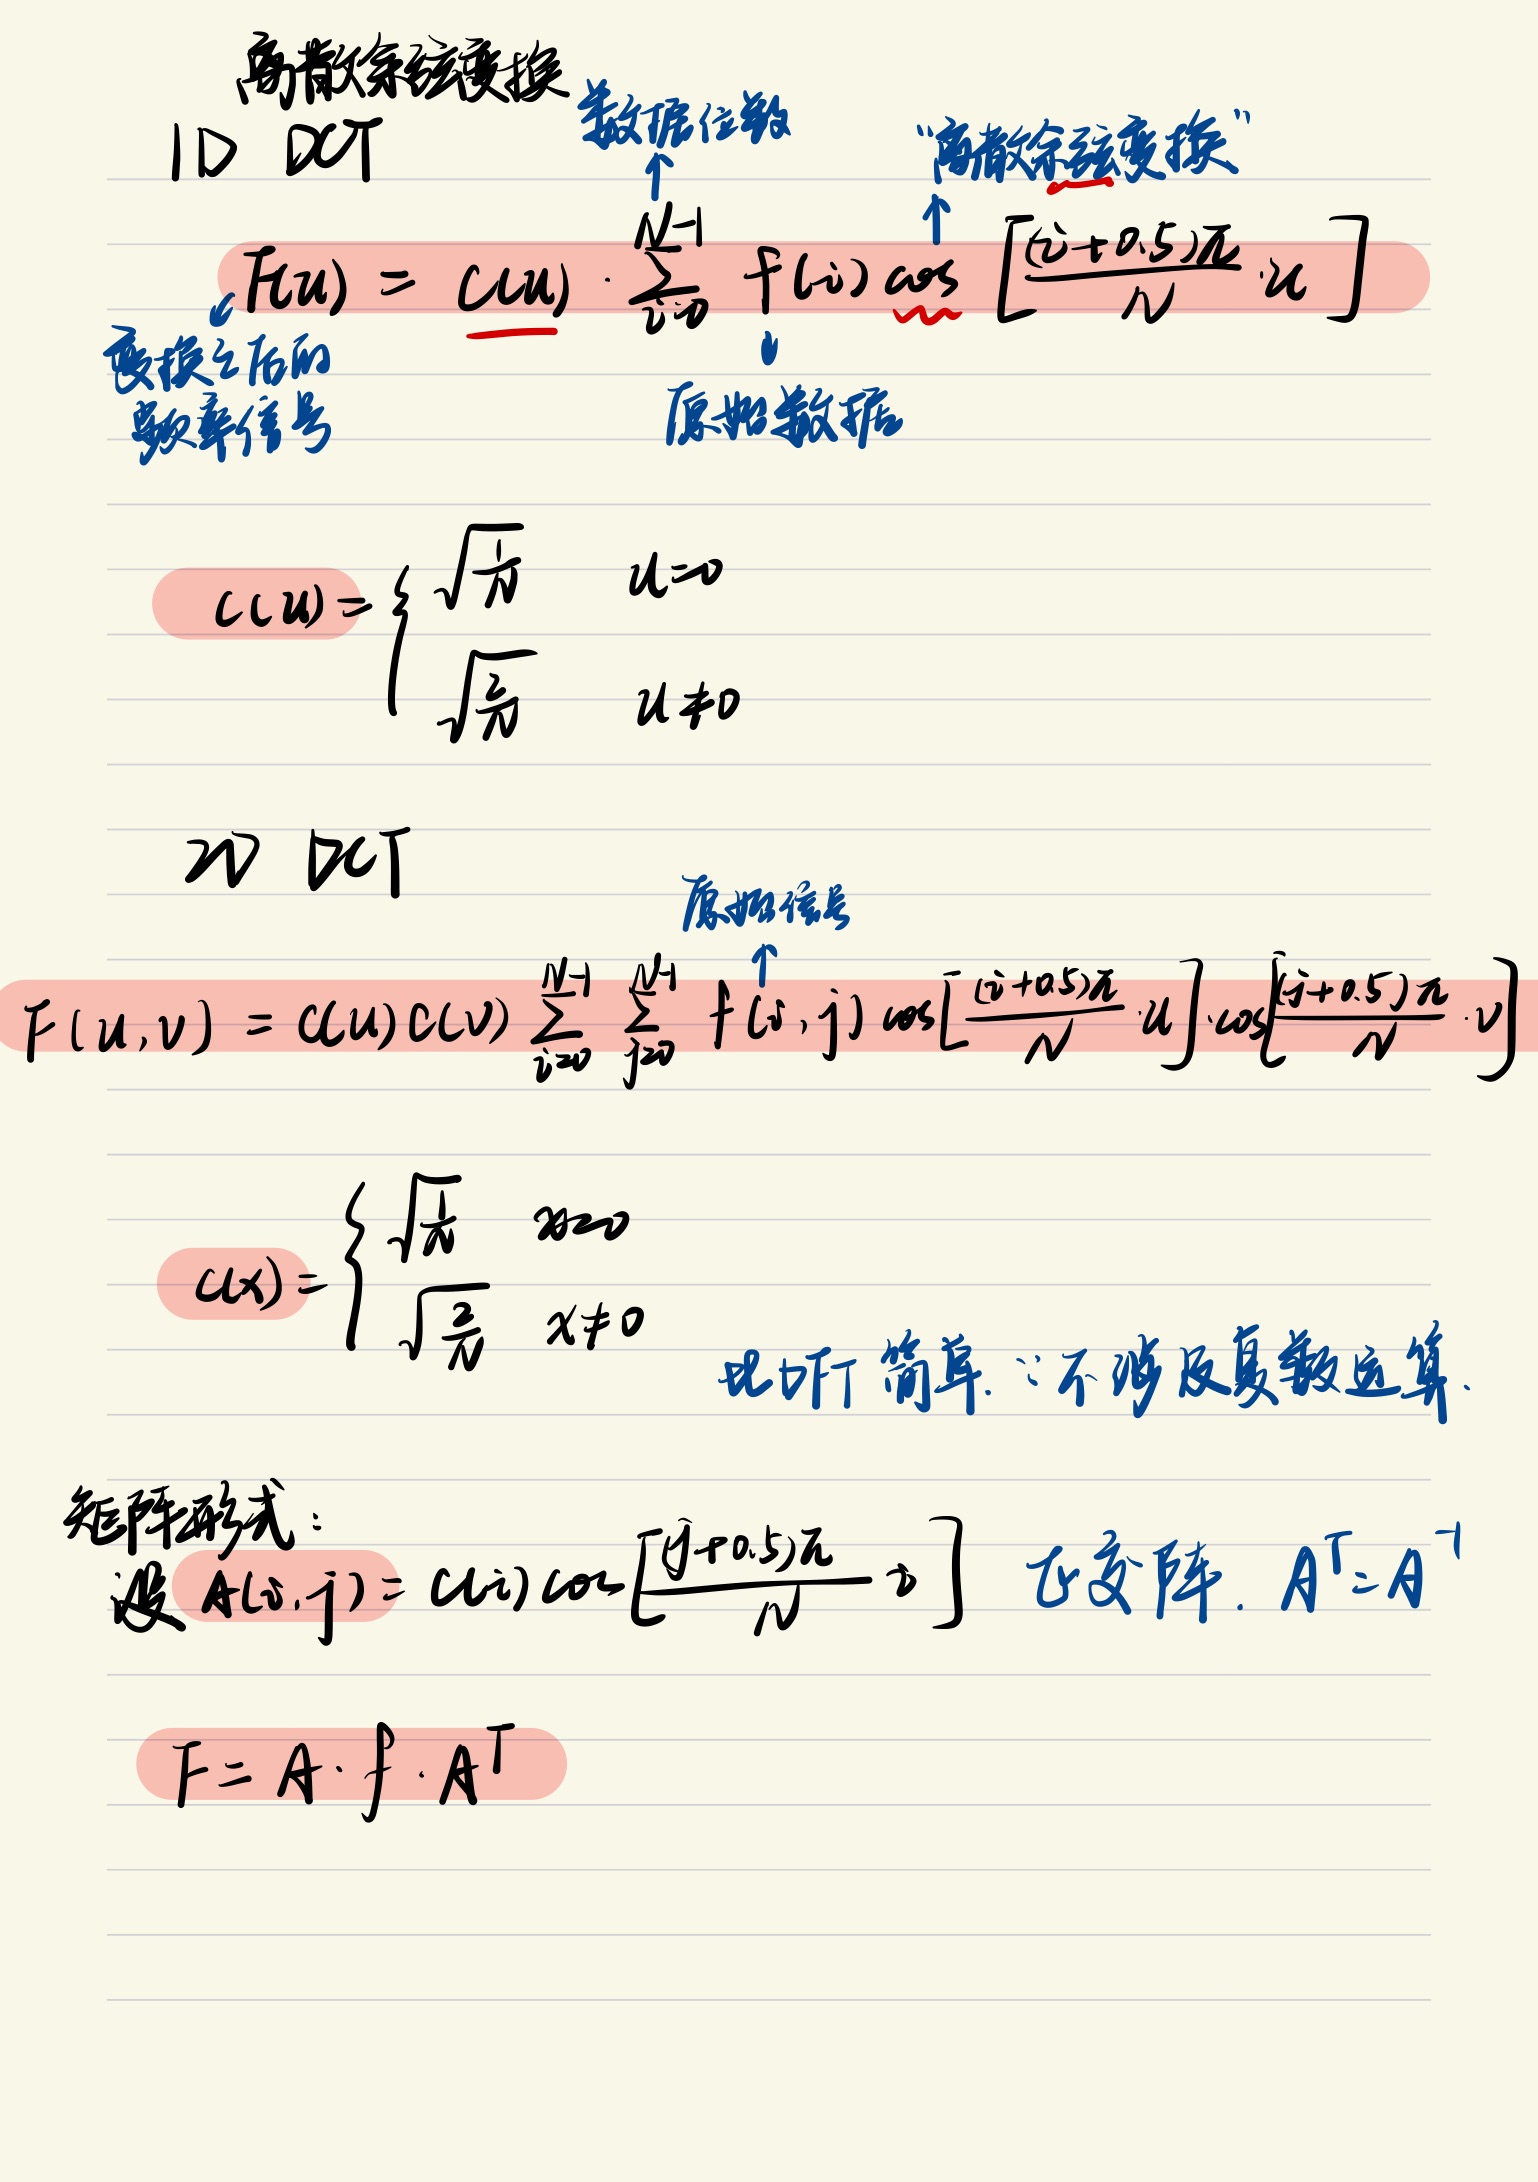 离散余弦变换
1D DCT
数据位数
“离散余弦变换”
F(u) = C(u) · ∑_{i=0}^{N-1} f(i) cos [ (i+0.5)π / N · u ]
变换之后的
频率信号
原始数据
C(u) = { √(1/N) u=0
√(2/N) u≠0
2D DCT
原始信号
F(u,v) = C(u) C(v) ∑_{i=0}^{N-1} ∑_{j=0}^{N-1} f(i,j) cos [ (i+0.5)π / N · u ] · cos [ (j+0.5)π / N · v ]
C(x) = { √(1/N) x=0
√(2/N) x≠0
比DFT 简单. ∵不涉及复数运算.
矩阵形式:
设 A(i,j) = C(i) cos [ (j+0.5)π / N i ] 正交阵. A^T = A^{-1}
F = A · f · A^T